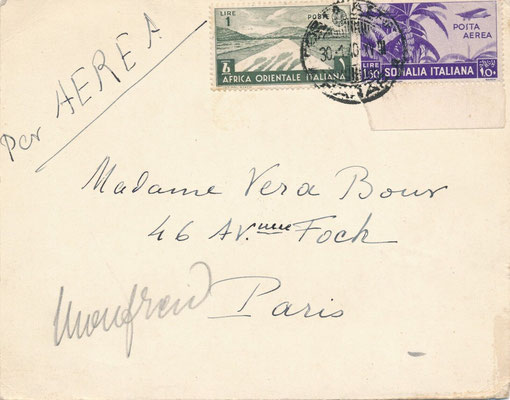 LIRE 1 POSTE
AFRICA ORIENTALE ITALIANA
POSTA
AEREA
LIRE 1.50 SOMALIA ITALIANA
Per AEREA
Madame Vera Bour
46 Av.nue Foch
Paris
Monfreid